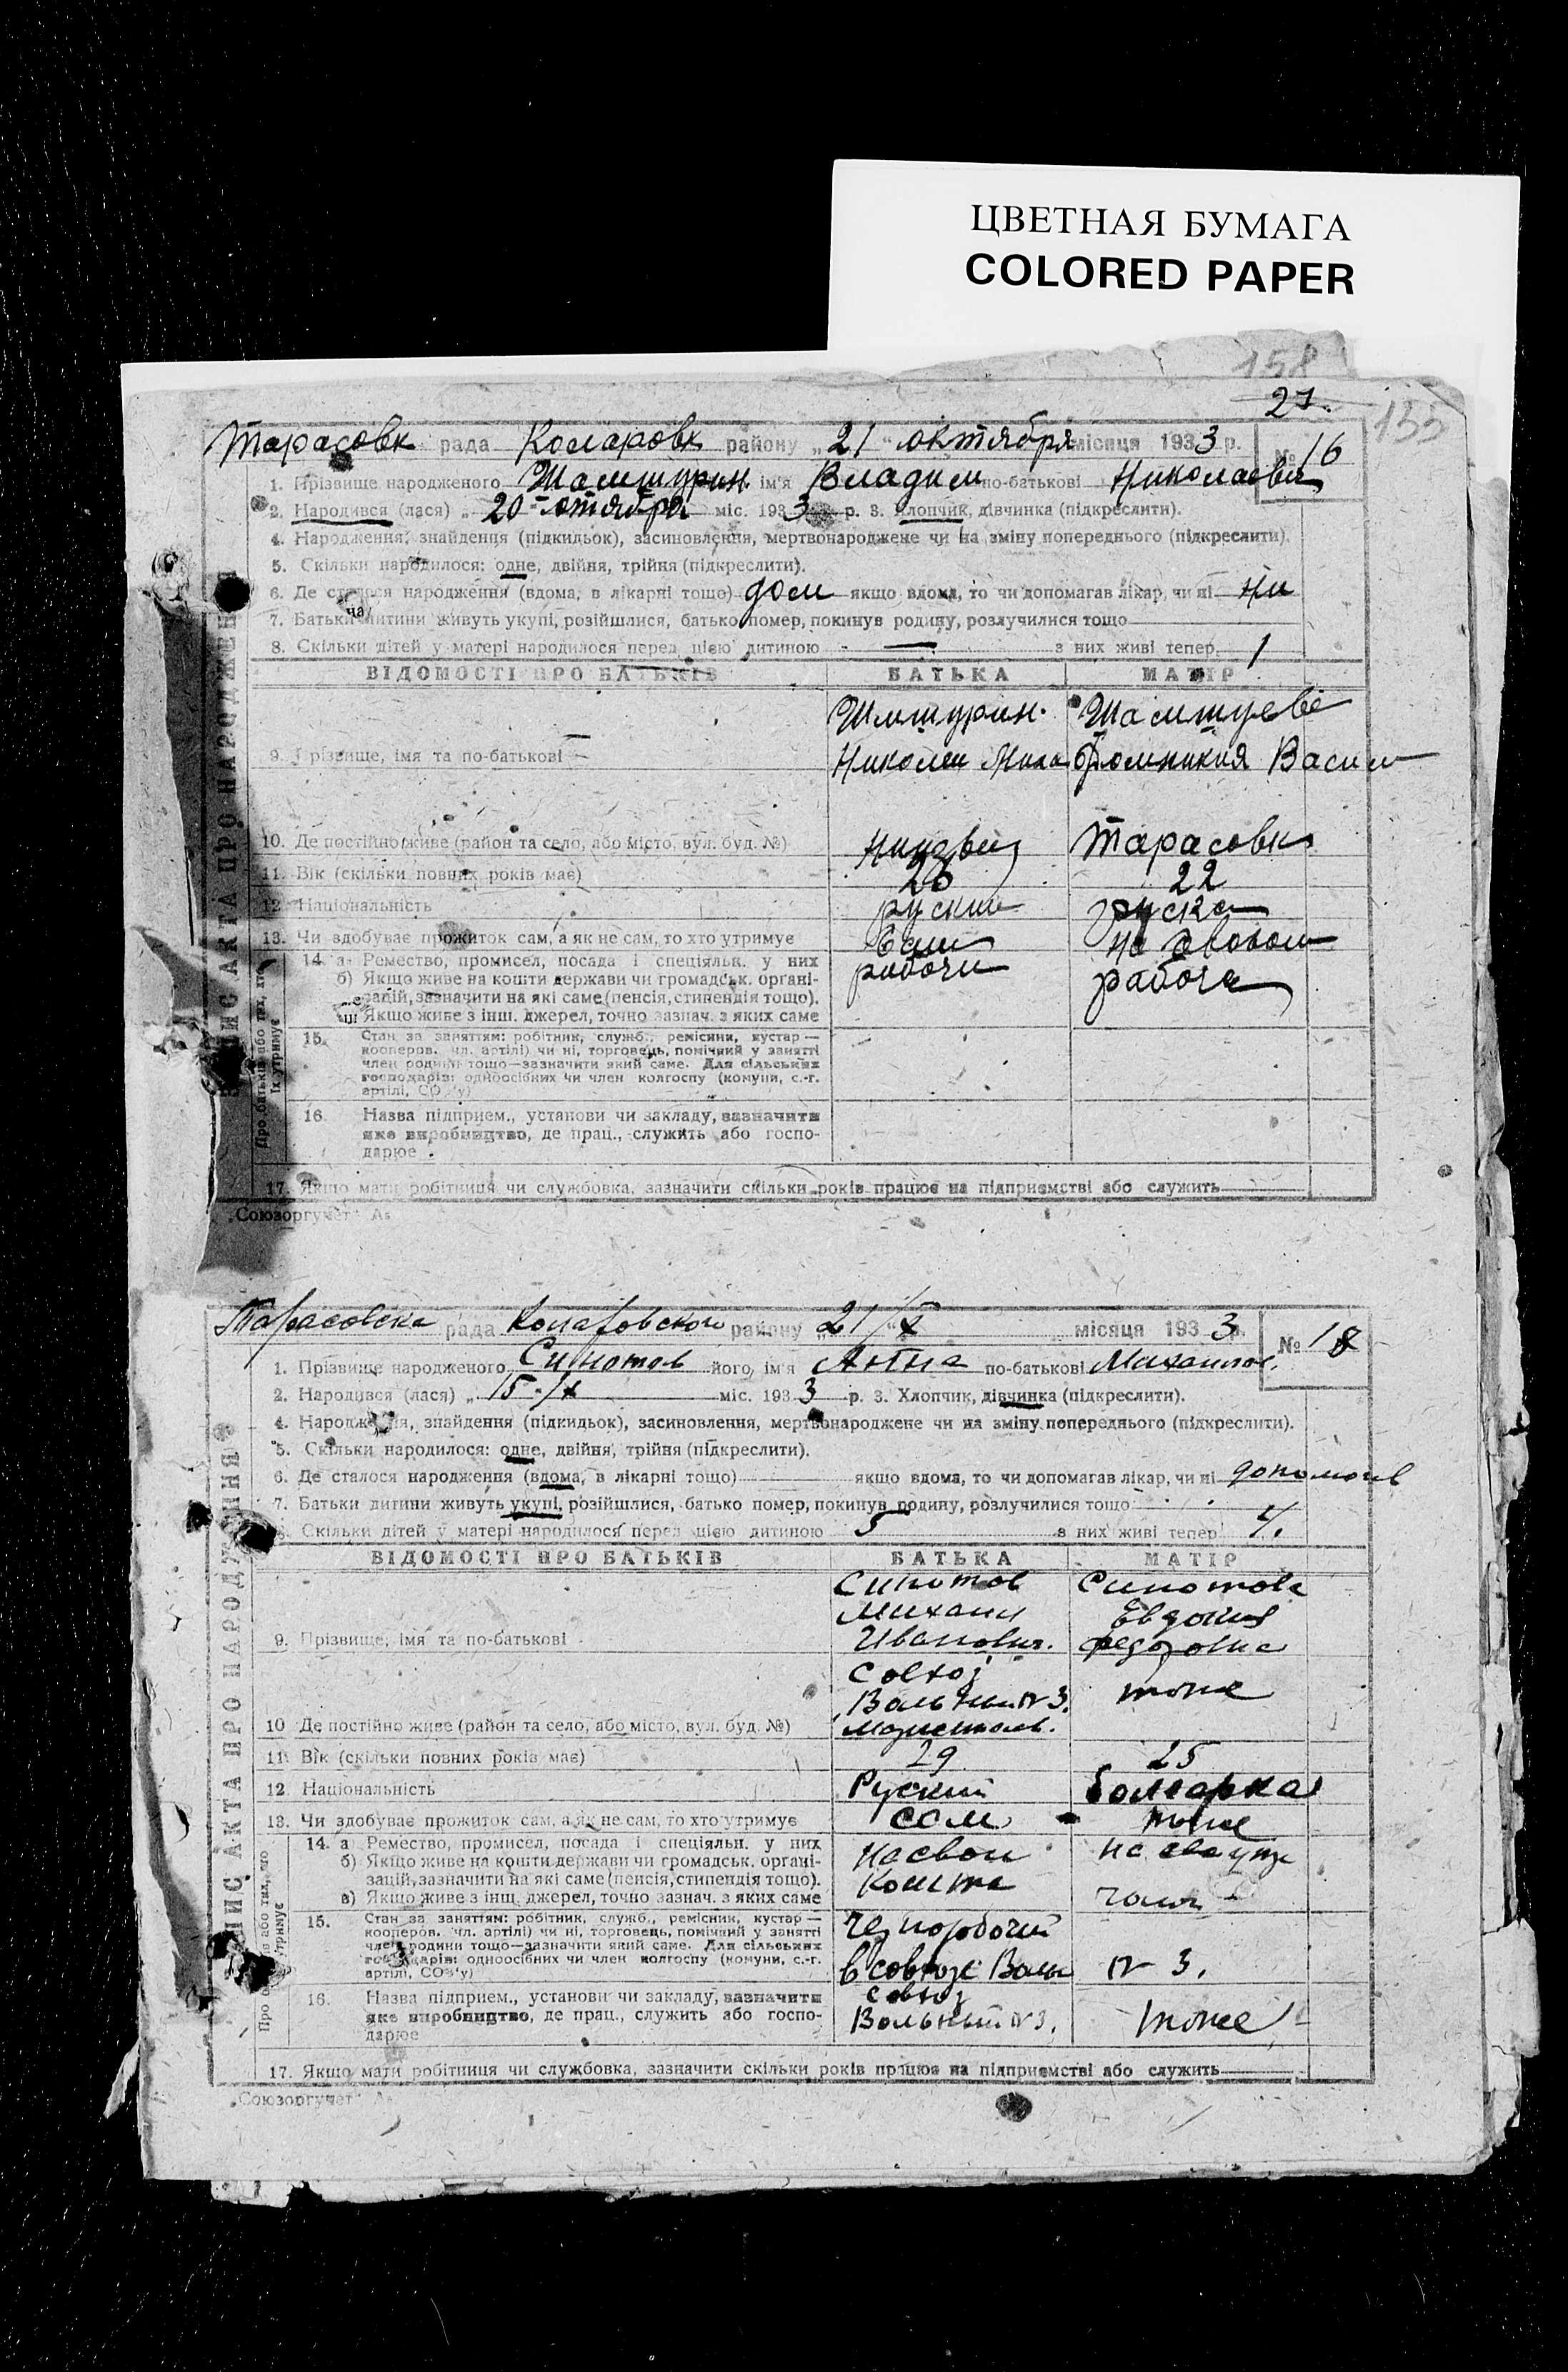 ЦВЕТНАЯ БУМАГА
COLORED PAPER
158
27.
135
Тарасовк рада Комаровк району „21" октября місяця 1933 р.
№ 16
1. Прізвище народженого Шамшурин ім'я Владим по-батькові Николаевич
2. Народився (лася) „20 отября міс. 1933 р. 3. Хлопчик, дівчинка (підкреслити).
4. Народження, знайдення (підкидьок), засиновлення, мертвонароджене чи на зміну попереднього (підкреслити).
5. Скільки народилося: одне, двійня, трійня (підкреслити).
6. Де сталося народження (вдома, в лікарні тощо) дом якщо вдома, то чи допомагав лікар, чи ні Ни
7. Батьки дитини живуть укупі, розійшлися, батько помер, покинув родину, розлучилися тощо
8. Скільки дітей у матері народилося перед цією дитиною — з них живі тепер 1
ВІДОМОСТІ ПРО БАТЬКІВ БАТЬКА МАТІР
Шмшурин. Шамшуева
9. Прізвище, імя та по-батькові Николаи Миха Фомникия Васил
10. Де постійно живе (район та село, або місто, вул. буд. №) Тарасовк
11. Вік (скільки повних років має) 26 22
12. Національність руский руска
13. Чи здобуває прожиток сам, а як не сам, то хто утримує
14. а Ремество, промисел, посада і спеціяльн. у них рабочи рабоча
б) Якщо живе на кошти держави чи громадськ. органі-
зацій, зазначити на які саме (пенсія, стипендія тощо).
Якщо живе з інш. джерел, точно зазнач. з яких саме
15. Стан за заняттям: робітник, служб., ремісник, кустар —
кооперов. чл. артілі) чи ні, торговець, помічний у занятті
член родини тощо—зазначити який саме. Для сільських
господарів: одноосібних чи член колгоспу (комуни, с.-г.
артілі, СОЗ'у)
16. Назва підприєм., установи чи закладу, зазначити
яке виробництво, де прац., служить або госпо-
дарює
17. Якщо мати робітниця чи службовка, зазначити скільки років працює на підприємстві або служить
„Союзоргучет"
ВИПИС АКТА ПРО НАРОДЖЕННЯ
Про батьків або тих, хто
їх утримує
Тарасовска рада Комаровского району „21/X" місяця 1933 р.
№ 18
1. Прізвище народженого Сипотов його, ім'я Анна по-батькові Михаилов.
2. Народився (лася) „15/X міс. 1933 р. 3. Хлопчик, дівчинка (підкреслити).
4. Народження, знайдення (підкидьок), засиновлення, мертвонароджене чи на зміну попереднього (підкреслити).
5. Скільки народилося: одне, двійня, трійня (підкреслити).
6. Де сталося народження (вдома, в лікарні тощо) якщо вдома, то чи допомагав лікар, чи ні допомогав
7. Батьки дитини живуть укупі, розійшлися, батько помер, покинув родину, розлучилися тощо
8. Скільки дітей у матері народилося перед цією дитиною 5 з них живі тепер 4.
ВІДОМОСТІ ПРО БАТЬКІВ БАТЬКА МАТІР
Сипотов Сипотова
Михаил Евдокия
9. Прізвище, імя та по-батькові Иванович. Федоровна
Совхоз
Вольный № 3. тоже
10 Де постійно живе (район та село, або місто, вул. буд. №)
11. Вік (скільки повних років має) 29 25
12. Національність Руский болгарка
13. Чи здобуває прожиток сам, а як не сам, то хто утримує сам тоже
14. а Ремество, промисел, посада і спеціяльн. у них на свои
б) Якщо живе на кошти держави чи громадськ. органі- кошти
зацій, зазначити на які саме (пенсія, стипендія тощо).
в) Якщо живе з інш. джерел, точно зазнач. з яких саме
15. Стан за заняттям: робітник, служб., ремісник, кустар —
кооперов. чл. артілі) чи ні, торговець, помічний у занятті
член родини тощо—зазначити який саме. Для сільських
господарів: одноосібних чи член колгоспу (комуни, с.-г.
артілі, СОЗ'у) в совхозе Воль № 3.
16. Назва підприєм., установи чи закладу, зазначити совхоз
яке виробництво, де прац., служить або госпо- Вольный № 3. тоже
дарює
17. Якщо мати робітниця чи службовка, зазначити скільки років працює на підприємстві або служить
„Союзоргучет"
ВИПИС АКТА ПРО НАРОДЖЕННЯ